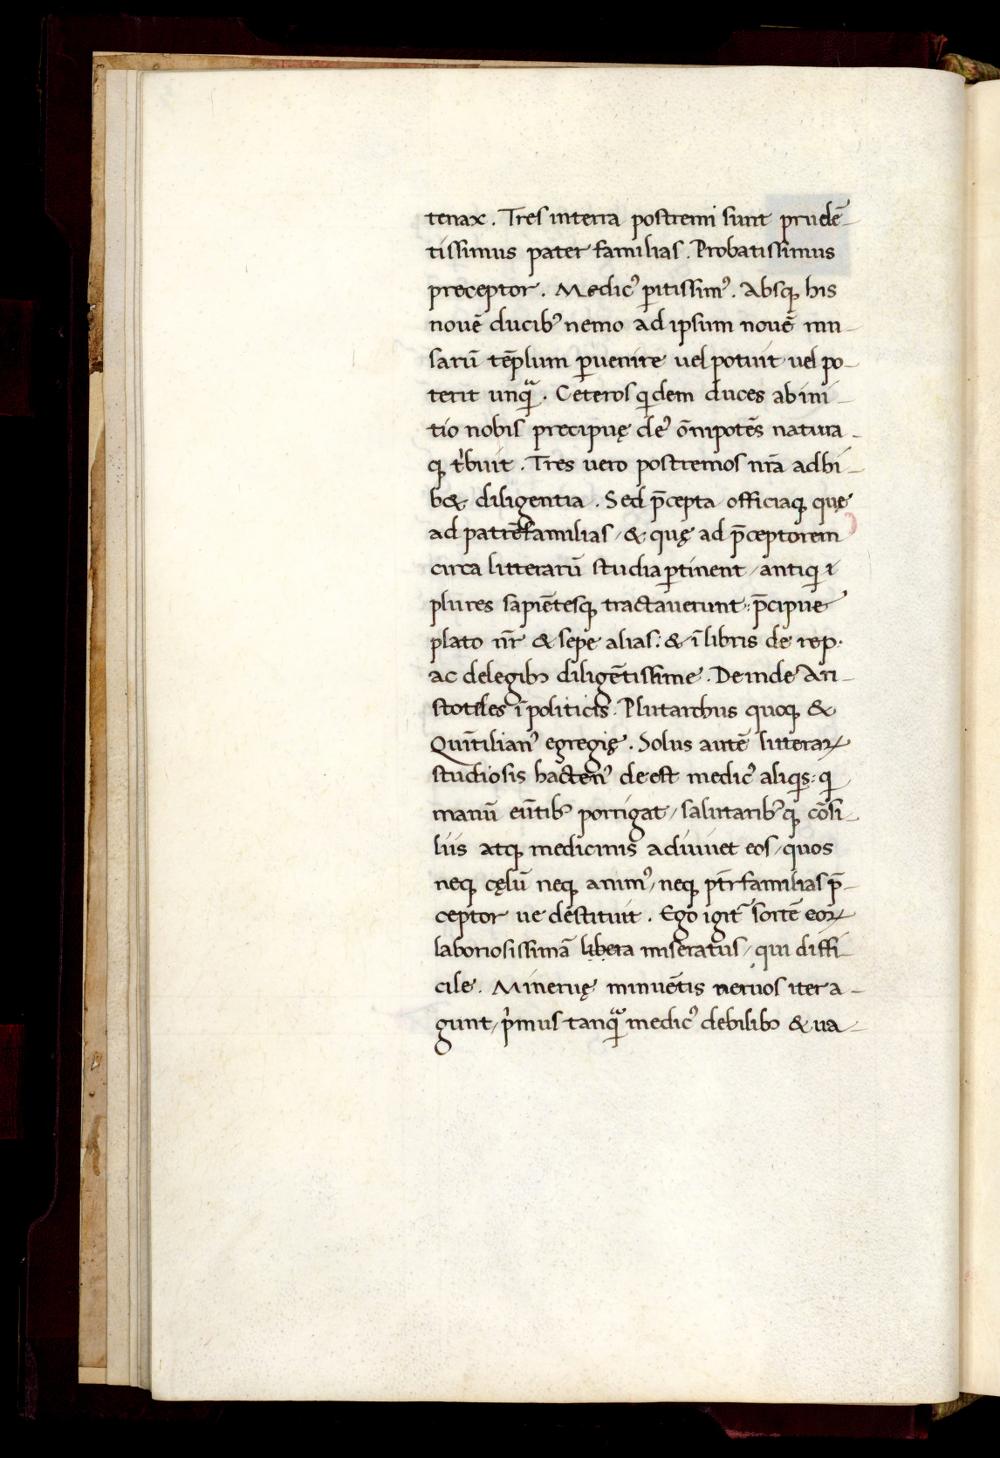 tenax. Tres in terra postremi sunt prudē-
tissimus pater familias. Probatissimus
preceptor. Medicꝰ pitissimꝰ. Absqꝫ his
nouē ducibꝰ nemo ad ipsum nouē mu-
sarū tēplum ꝑuenire uel potuit uel po-
terit unqͣ. Ceteros qdem duces ab ini-
tio nobis precipuę deꝰ ōnipotēs natura-
qꝫ tͥbuit. Tres uero postremos nr̄a adhi-
b& diligentia. Sed p̄cepta officiaqꝫ quę
ad patrē familias / & quę ad p̄ceptorem
circa litterarū studia ꝑtinent / antiqi
plures sapiētesqꝫ tractauerunt: p̄cipue
plato nr̄ & sepe alias: & ī libris de rep.
ac de legibꝫ diligētissime. Deinde Ari-
stotiles ī politicis. Plutarchus quoqꝫ &
Quītilianꝰ egregię. Solus autē litteraꝝ
studiosis hactenꝰ deest medicꝰ aliqis: qi
manū eūtibꝰ porrigat / salutaribꝰqꝫ cōsi-
liis atqꝫ medicinis adiuuet eos / quos
neqꝫ cęlū neqꝫ animꝰ, neqꝫ pr̄familias p̄-
ceptor ue dēstituit. Ego igit᷑ sortē eoꝝ
laboriosissimā libera miseratus / qui diffi-
cile. Mineruę minuētis neruos iter a-
gunt, pͥmus tanqͣ medicꝰ debilibꝫ & ua-